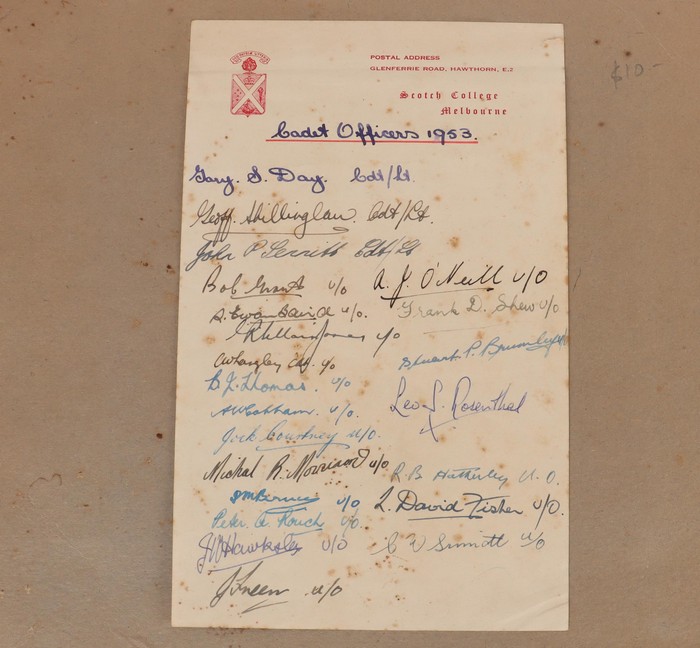 POSTAL ADDRESS
GLENFERRIE ROAD, HAWTHORN, E.2
$10-
Scotch College
Melbourne
Cadet Officers 1953.
Gary. S. Day. Cdt/Lt.
Geoff. Shillinglaw. Cdt/Lt.
John P Gerritt Cdt/Lt
Bob Grant U/O
A. J. O'Neill U/O
A. Ewan Baird U/O.
Frank D. Shew U/O
U/O
Stuart P.
A W Langley Cdt. U/O
B. J. Thomas. U/O
Leo S. Rosenthal
U/O.
Jock Courtney U/O.
Michal R. Morrison U/O
R B Hatherley U.O.
U/O
L. David Fisher U/O.
Peter. A. Rouch U/O.
C W Sinnott U/O
J W Hawksley U/O
J Freen U/O